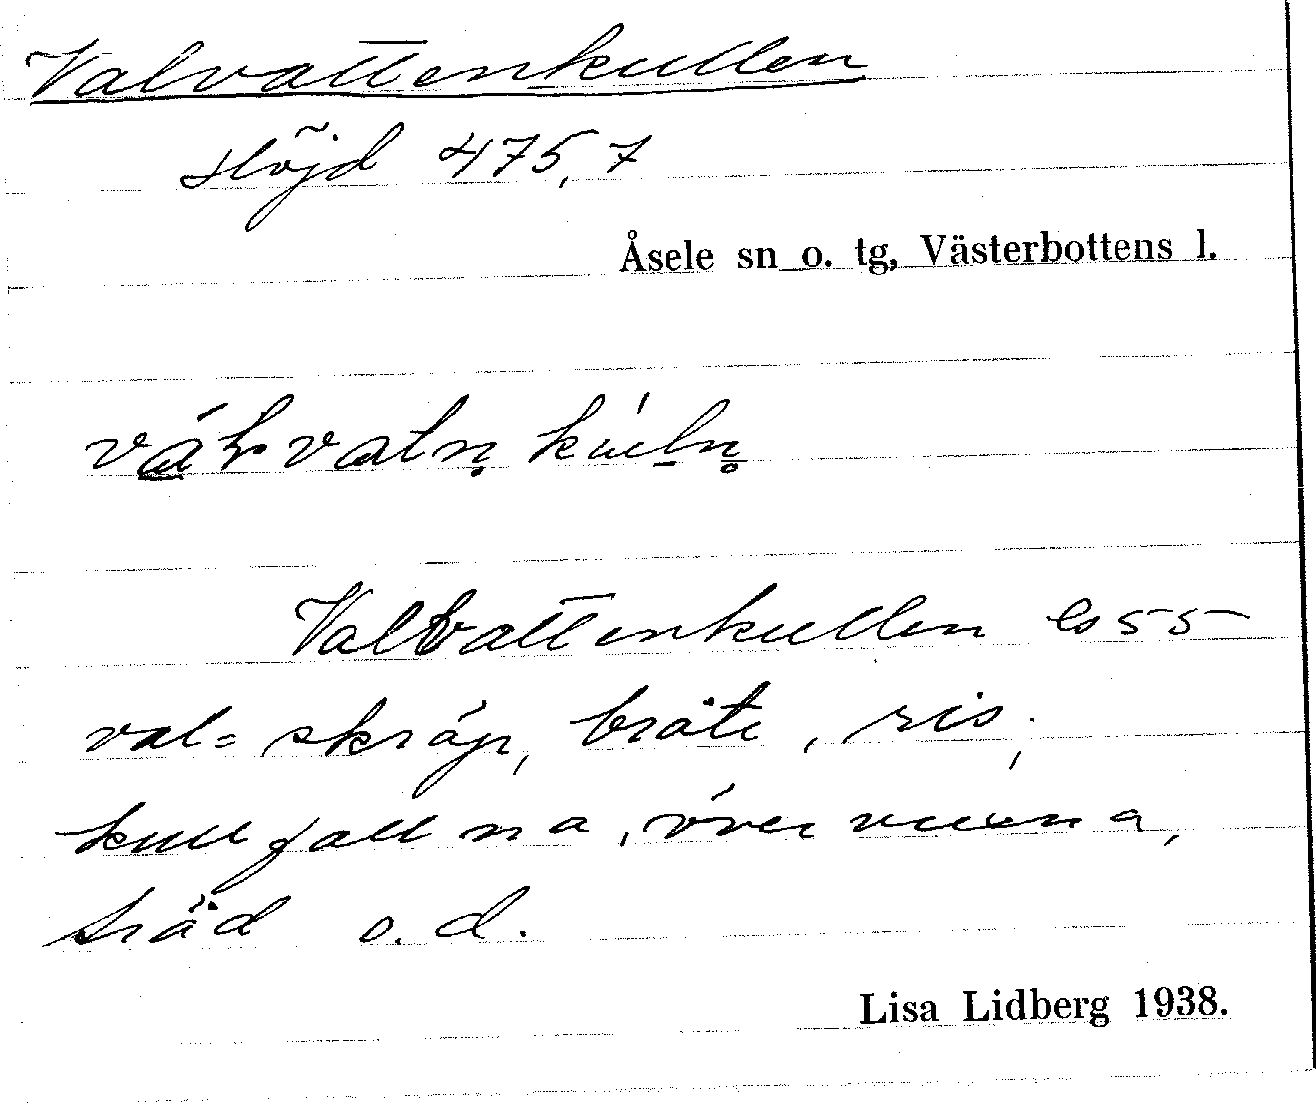 Valvattenkullen
Höjd 475,7
Åsele sn o. tg, Västerbottens l.
Valvattenkullen Es 55
val = skräp, bråte, ris,
kullfallna, övervuxna,
träd o. d.
Lisa Lidberg 1938.